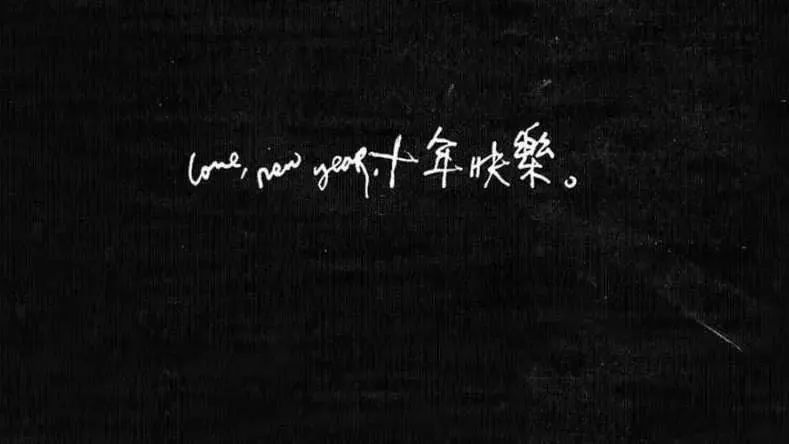 love, new year, 十年快樂。